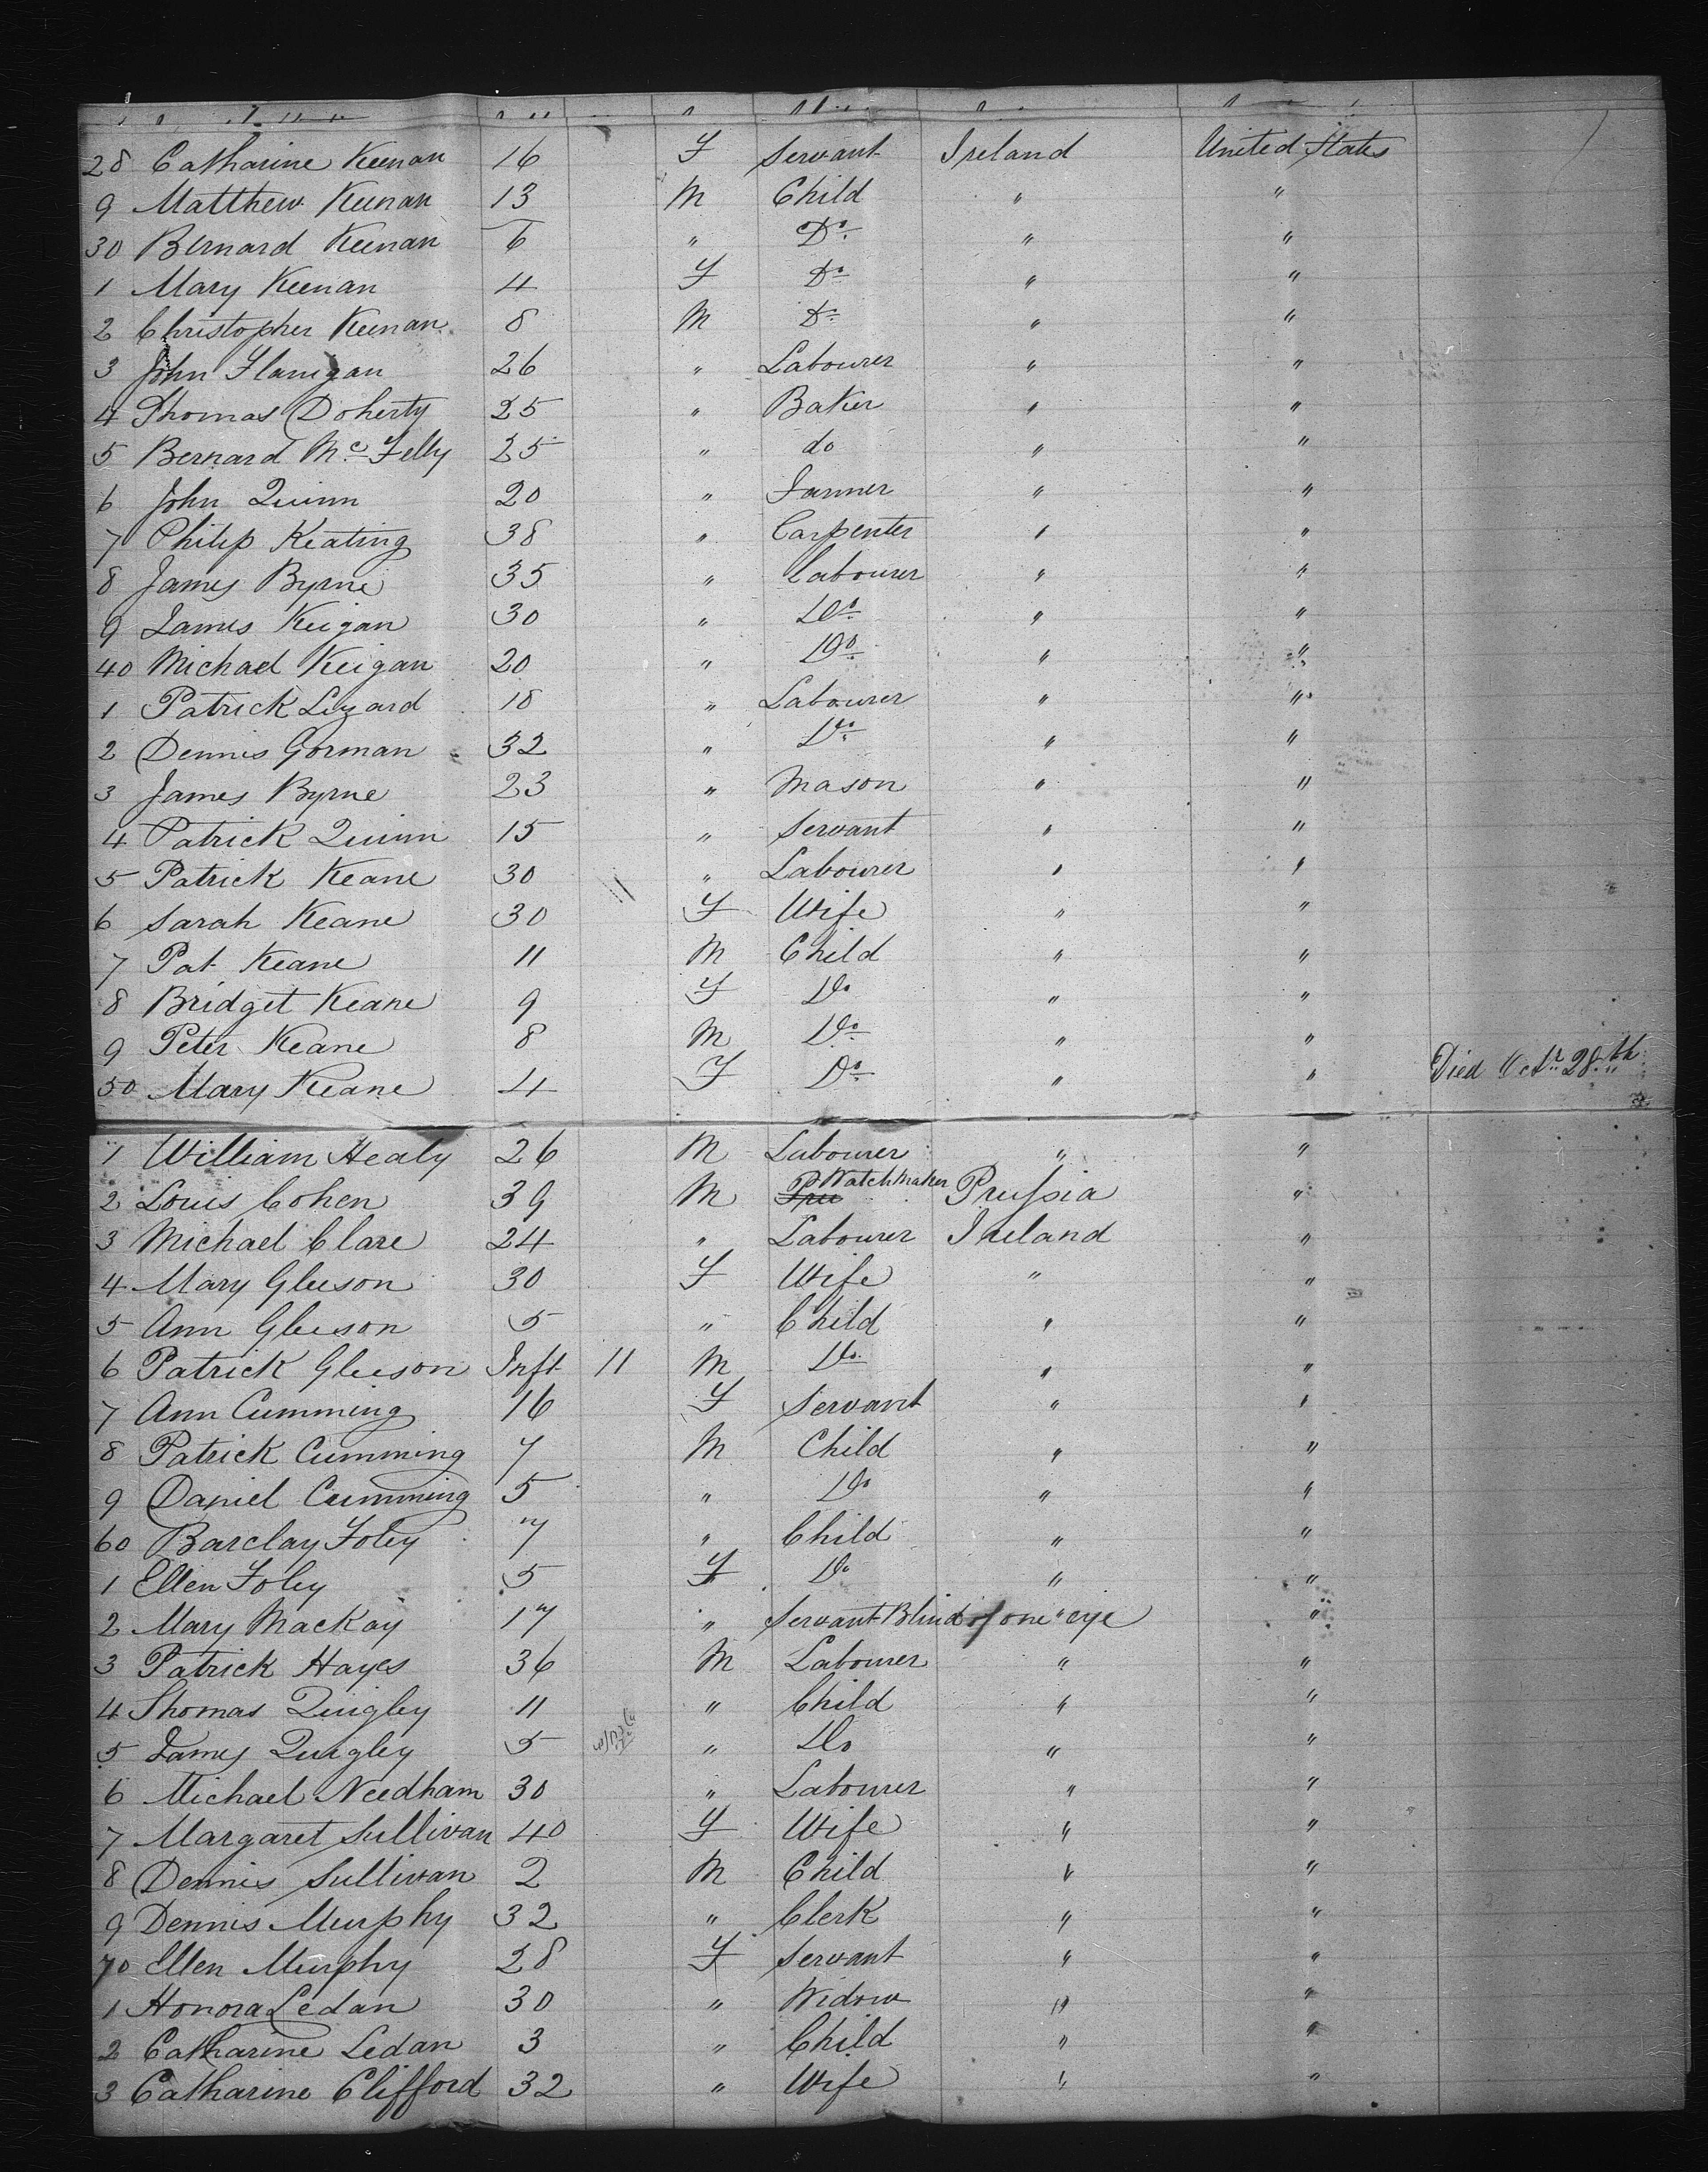 28 Catharine Keenan 16 F Servant Ireland United States
9 Matthew Keenan 13 M Child " "
30 Bernard Keenan 6 " Do " "
1 Mary Keenan 4 F Do " "
2 Christopher Keenan 8 M Do " "
3 John Flanigan 26 " Labourer " "
4 Thomas Doherty 25 " Baker " "
5 Bernard Mc Felly 25 " do " "
6 John Quinn 20 " Farmer " "
7 Philip Keating 38 " Carpenter " "
8 James Byrne 35 " Labourer " "
9 James Keigan 30 " Do " "
40 Michael Keigan 20 " Do " "
1 Patrick Lizard 18 " Labourer " "
2 Dennis Gorman 32 " Do " "
3 James Byrne 23 " Mason " "
4 Patrick Quinn 15 " Servant " "
5 Patrick Keane 30 " Labourer " "
6 Sarah Keane 30 F Wife " "
7 Pat Keane 11 M Child " "
8 Bridget Keane 9 F Do " "
9 Peter Keane 8 M Do " "
50 Mary Keane 4 F Do " " Died Octr 28th
1 William Healy 26 M Labourer " "
2 Louis Cohen 39 M Watchmaker Prussia "
3 Michael Clare 24 " Labourer Ireland "
4 Mary Gleeson 30 F Wife " "
5 Ann Gleeson 5 " Child " "
6 Patrick Gleeson Inft 11 M Do " "
7 Ann Cumming 16 F Servant " "
8 Patrick Cumming 7 M Child " "
9 Daniel Cumming 5 " Do " "
60 Barclay Foley 7 " Child " "
1 Ellen Foley 5 F Do " "
2 Mary MacKay 17 " Servant Blind of one " eye "
3 Patrick Hayes 36 M Labourer " "
4 Thomas Quigley 11 " Child " "
5 James Quigley 5 " Do " "
6 Michael Needham 30 " Labourer " "
7 Margaret Sullivan 40 F Wife " "
8 Dennis Sullivan 2 M Child " "
9 Dennis Murphy 32 " Clerk " "
70 Ellen Murphy 28 F Servant " "
1 Honora Ledan 30 " Widow " "
2 Catharine Ledan 3 " Child " "
3 Catharine Clifford 32 " Wife " "